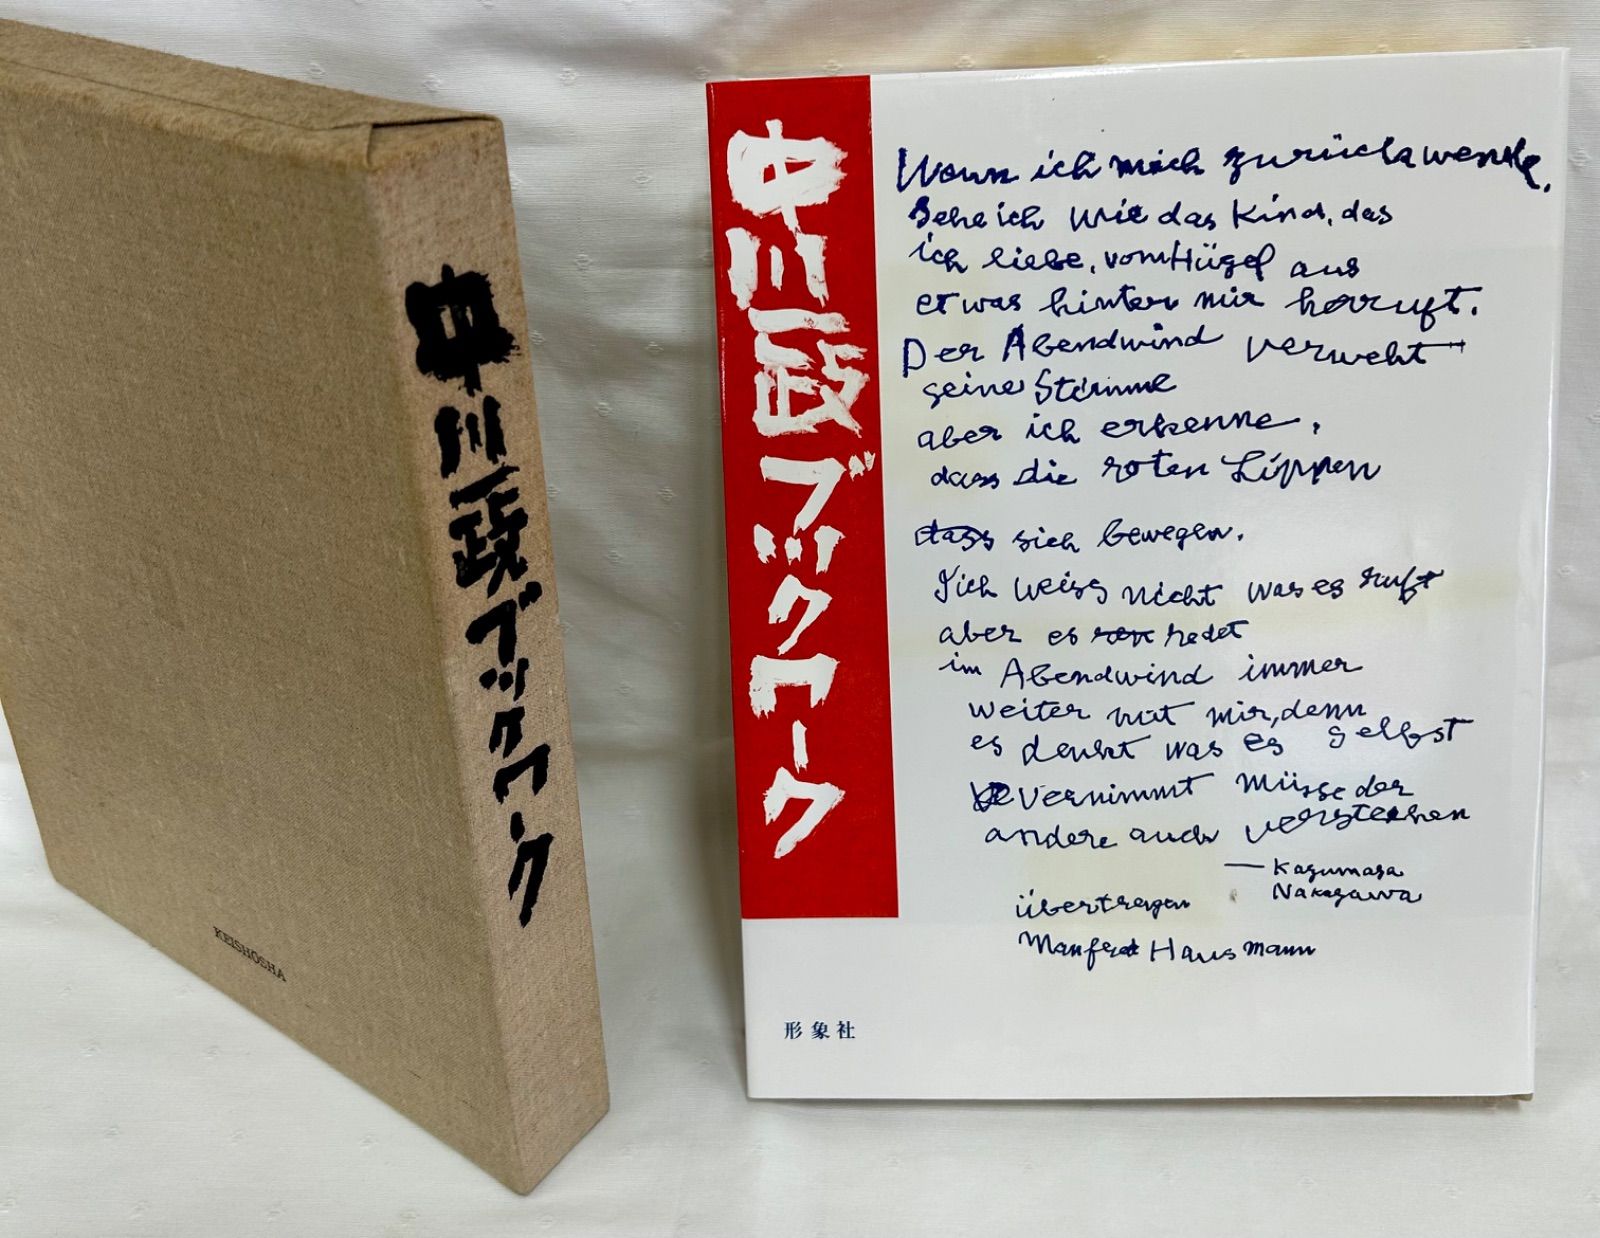 中川一政ブックワーク
KEISHOSHA
中川一政ブックワーク
Wenn ich mich zurückwende,
sehe ich wie das Kind, das
ich liebe, vom Hügel aus
etwas hinter mir herruft.
Der Abendwind verweht
seine Stimme
aber ich erkenne,
dass die roten Lippen
dass sich bewegen.
Ich weiss nicht was es ruft
aber es redet
im Abendwind immer
weiter mit mir, denn
es denkt was es selbst
vernimmt müsse der
andere auch verstehen
— Kazumasa
Nakagawa
übertragen
Manfred Hausmann
形象社